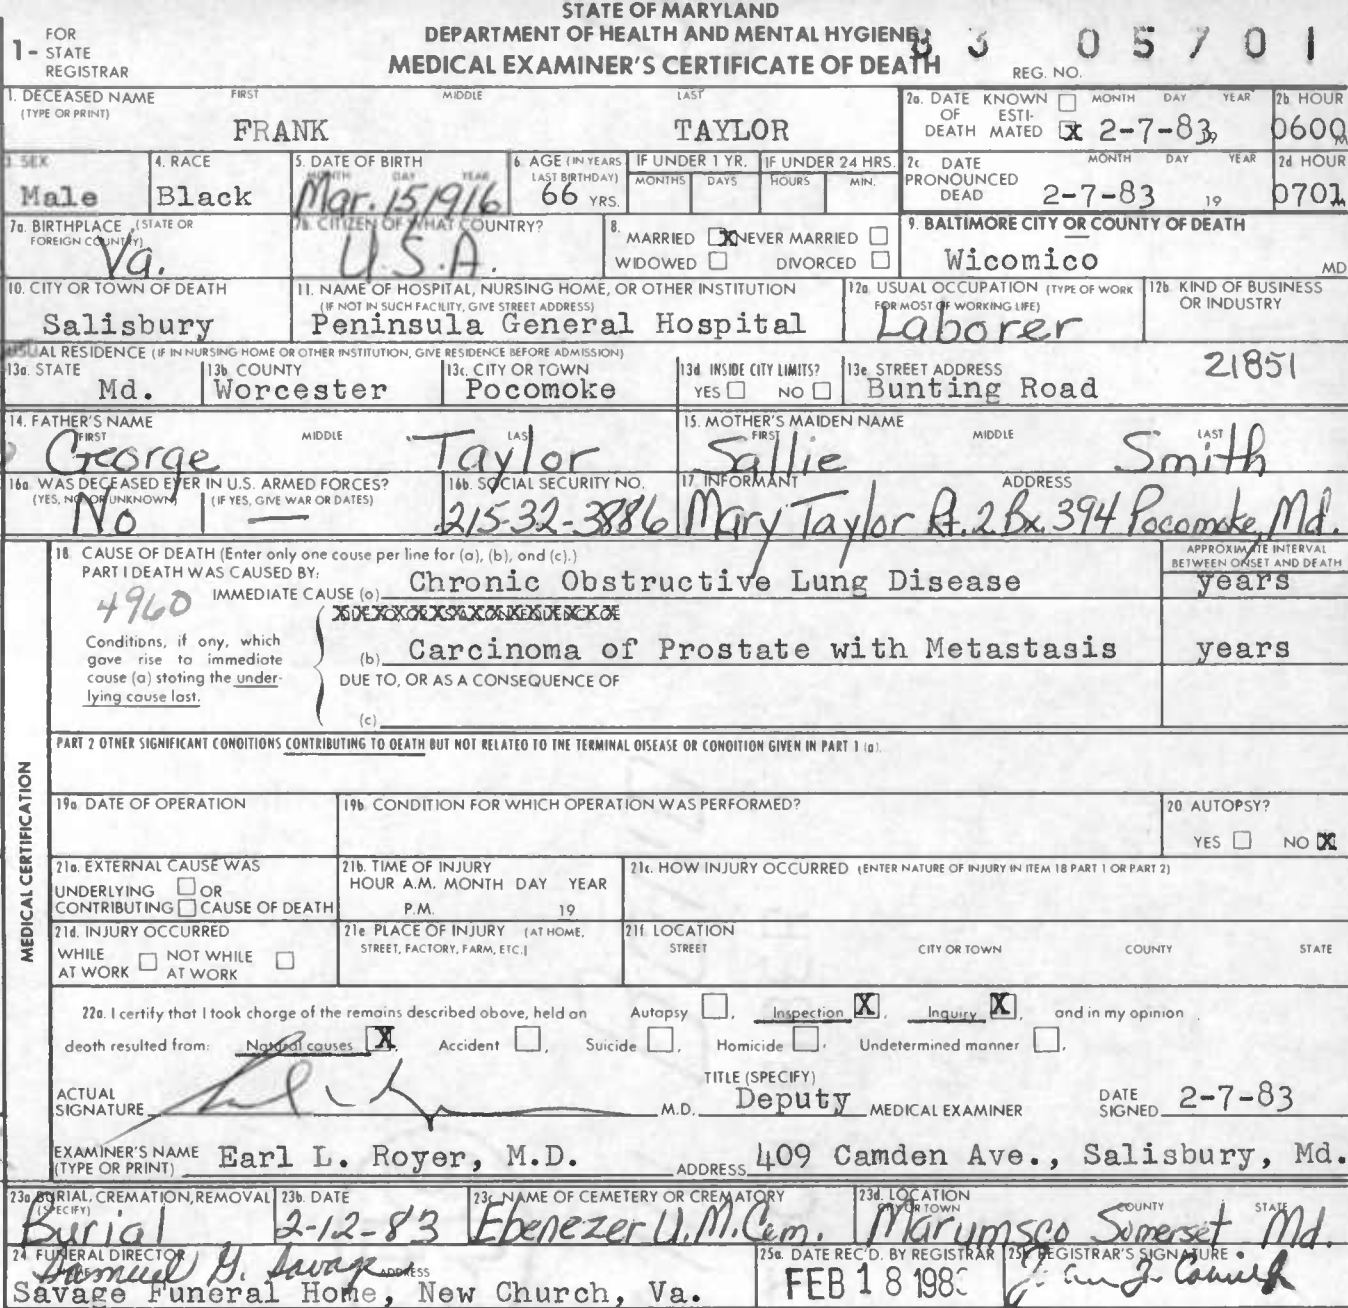 STATE OF MARYLAND
DEPARTMENT OF HEALTH AND MENTAL HYGIENE
MEDICAL EXAMINER'S CERTIFICATE OF DEATH
1- FOR STATE REGISTRAR
REG. NO. 83 05701
1. DECEASED NAME (TYPE OR PRINT) FIRST MIDDLE LAST
FRANK TAYLOR
2a. DATE OF DEATH KNOWN ☐ ESTIMATED ☒ MONTH DAY YEAR 2-7-83, 19
2b HOUR 0600 M
3. SEX Male
4. RACE Black
5. DATE OF BIRTH MONTH DAY YEAR Mar. 15 1916
6. AGE (IN YEARS LAST BIRTHDAY) 66 YRS.
IF UNDER 1 YR. MONTHS DAYS
IF UNDER 24 HRS. HOURS MIN.
2c DATE PRONOUNCED DEAD MONTH DAY YEAR 2-7-83 19
2d HOUR 0701
7a. BIRTHPLACE (STATE OR FOREIGN COUNTRY) Va.
7b. CITIZEN OF WHAT COUNTRY? U.S.A.
8. MARRIED ☒ NEVER MARRIED ☐
WIDOWED ☐ DIVORCED ☐
9. BALTIMORE CITY OR COUNTY OF DEATH
Wicomico MD
10. CITY OR TOWN OF DEATH
Salisbury
11. NAME OF HOSPITAL, NURSING HOME, OR OTHER INSTITUTION
(IF NOT IN SUCH FACILITY, GIVE STREET ADDRESS)
Peninsula General Hospital
12a USUAL OCCUPATION (TYPE OF WORK FOR MOST OF WORKING LIFE)
Laborer
12b. KIND OF BUSINESS OR INDUSTRY
USUAL RESIDENCE (IF IN NURSING HOME OR OTHER INSTITUTION, GIVE RESIDENCE BEFORE ADMISSION)
13a. STATE Md.
13b COUNTY Worcester
13c. CITY OR TOWN Pocomoke
13d INSIDE CITY LIMITS? YES ☐ NO ☐
13e. STREET ADDRESS Bunting Road 21851
14. FATHER'S NAME FIRST MIDDLE LAST
George Taylor
15. MOTHER'S MAIDEN NAME FIRST MIDDLE LAST
Sallie Smith
16a. WAS DECEASED EVER IN U.S. ARMED FORCES?
(YES, NO, OR UNKNOWN) No (IF YES, GIVE WAR OR DATES) —
16b. SOCIAL SECURITY NO.
215-32-3886
17 INFORMANT ADDRESS
Mary Taylor Rt. 2 Bx. 394 Pocomoke, Md.
MEDICAL CERTIFICATION
18. CAUSE OF DEATH (Enter only one cause per line for (a), (b), and (c).)
APPROXIMATE INTERVAL BETWEEN ONSET AND DEATH
PART I DEATH WAS CAUSED BY:
4960
IMMEDIATE CAUSE (a) Chronic Obstructive Lung Disease years
Conditions, if any, which gave rise to immediate cause (a) stating the underlying cause last.
(b) Carcinoma of Prostate with Metastasis years
DUE TO, OR AS A CONSEQUENCE OF
(c)
PART 2 OTHER SIGNIFICANT CONDITIONS CONTRIBUTING TO DEATH BUT NOT RELATED TO THE TERMINAL DISEASE OR CONDITION GIVEN IN PART 1 (a).
19a. DATE OF OPERATION
19b. CONDITION FOR WHICH OPERATION WAS PERFORMED?
20. AUTOPSY?
YES ☐ NO ☒
21a. EXTERNAL CAUSE WAS
UNDERLYING ☐ OR
CONTRIBUTING ☐ CAUSE OF DEATH
21b. TIME OF INJURY
HOUR A.M. MONTH DAY YEAR
P.M. 19
21c. HOW INJURY OCCURRED (ENTER NATURE OF INJURY IN ITEM 18 PART 1 OR PART 2)
21d. INJURY OCCURRED
WHILE AT WORK ☐ NOT WHILE AT WORK ☐
21e PLACE OF INJURY (AT HOME, STREET, FACTORY, FARM, ETC.)
21f. LOCATION
STREET CITY OR TOWN COUNTY STATE
22a. I certify that I took charge of the remains described above, held an Autopsy ☐, Inspection ☒, Inquiry ☒, and in my opinion
death resulted from: Natural causes ☒ Accident ☐, Suicide ☐, Homicide ☐, Undetermined manner ☐.
ACTUAL SIGNATURE M.D.
TITLE (SPECIFY) Deputy MEDICAL EXAMINER
DATE SIGNED 2-7-83
EXAMINER'S NAME (TYPE OR PRINT) Earl L. Royer, M.D.
ADDRESS 409 Camden Ave., Salisbury, Md.
23a. BURIAL, CREMATION, REMOVAL (SPECIFY) Burial
23b. DATE 2-12-83
23c. NAME OF CEMETERY OR CREMATORY Ebenezer U.M. Cem.
23d. LOCATION CITY OR TOWN COUNTY STATE
Marumsco Somerset Md.
24 FUNERAL DIRECTOR ADDRESS
Samuel G. Savage
Savage Funeral Home, New Church, Va.
25a. DATE REC'D. BY REGISTRAR
FEB 18 198
25b REGISTRAR'S SIGNATURE